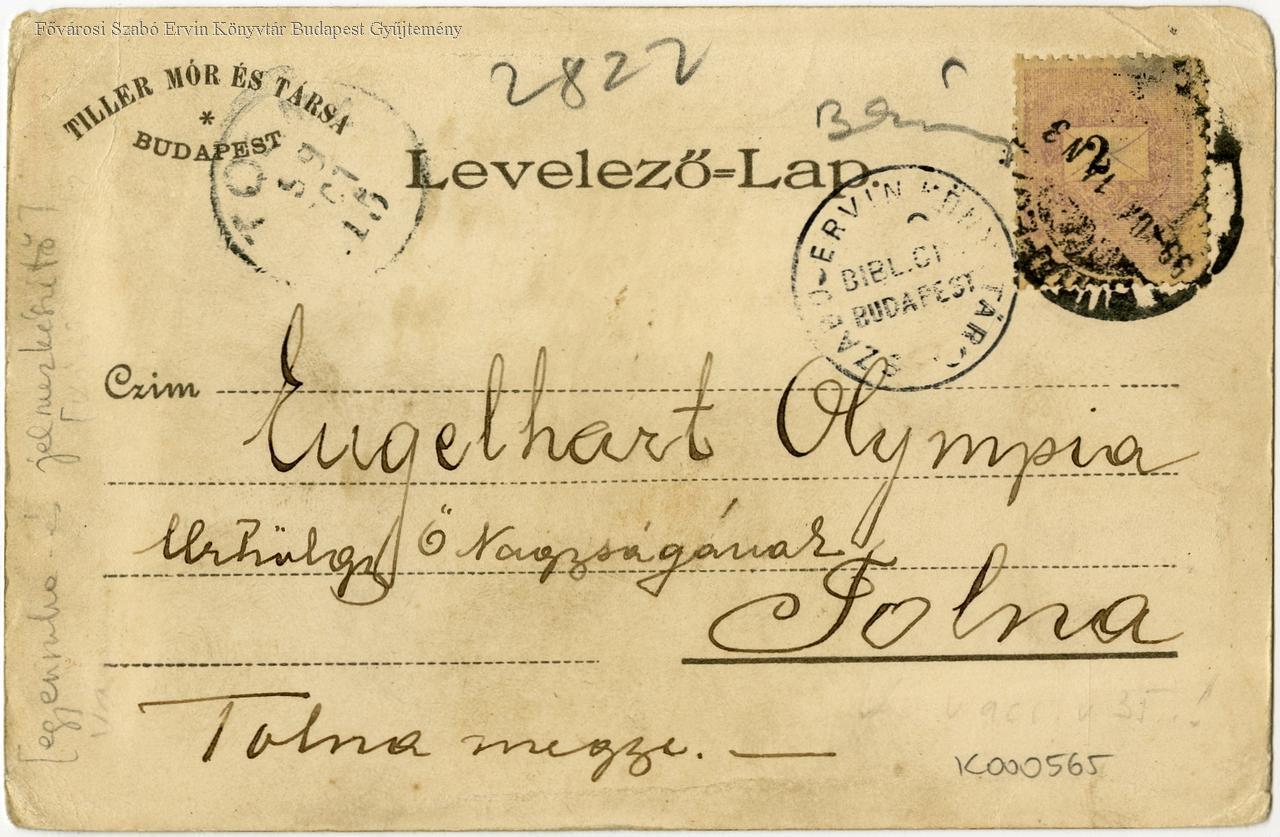 Fővárosi Szabó Ervin Könyvtár Budapest Gyűjtemény
TILLER MÓR ÉS TÁRSA
*
BUDAPEST
2822
Levelező=Lap.
SZABÓ-ERVIN KÖNYVTÁR
BIBL. CI
BUDAPEST
2
Czim
Engelhart Olympia
Urhölgy ő Nagyságának
Tolna
Tolna megye. —
K000565
[egyenruha- és jelmezkészítő]